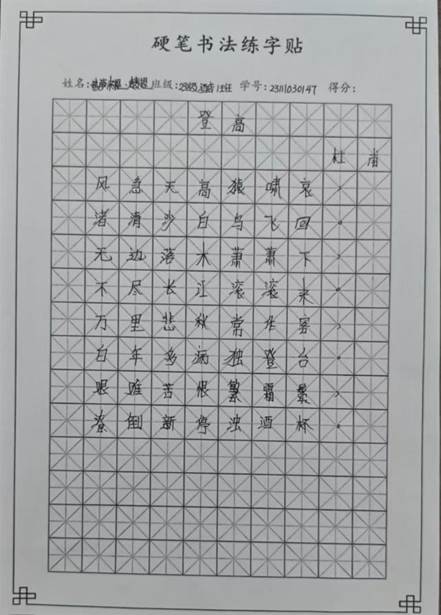 硬笔书法练字贴
姓名: 班级:23级语言12班 学号:2311030147 得分:
登高
杜甫
风急天高猿啸哀,
渚清沙白鸟飞回。
无边落木萧萧下,
不尽长江滚滚来。
万里悲秋常作客,
百年多病独登台。
艰难苦恨繁霜鬓,
潦倒新停浊酒杯。